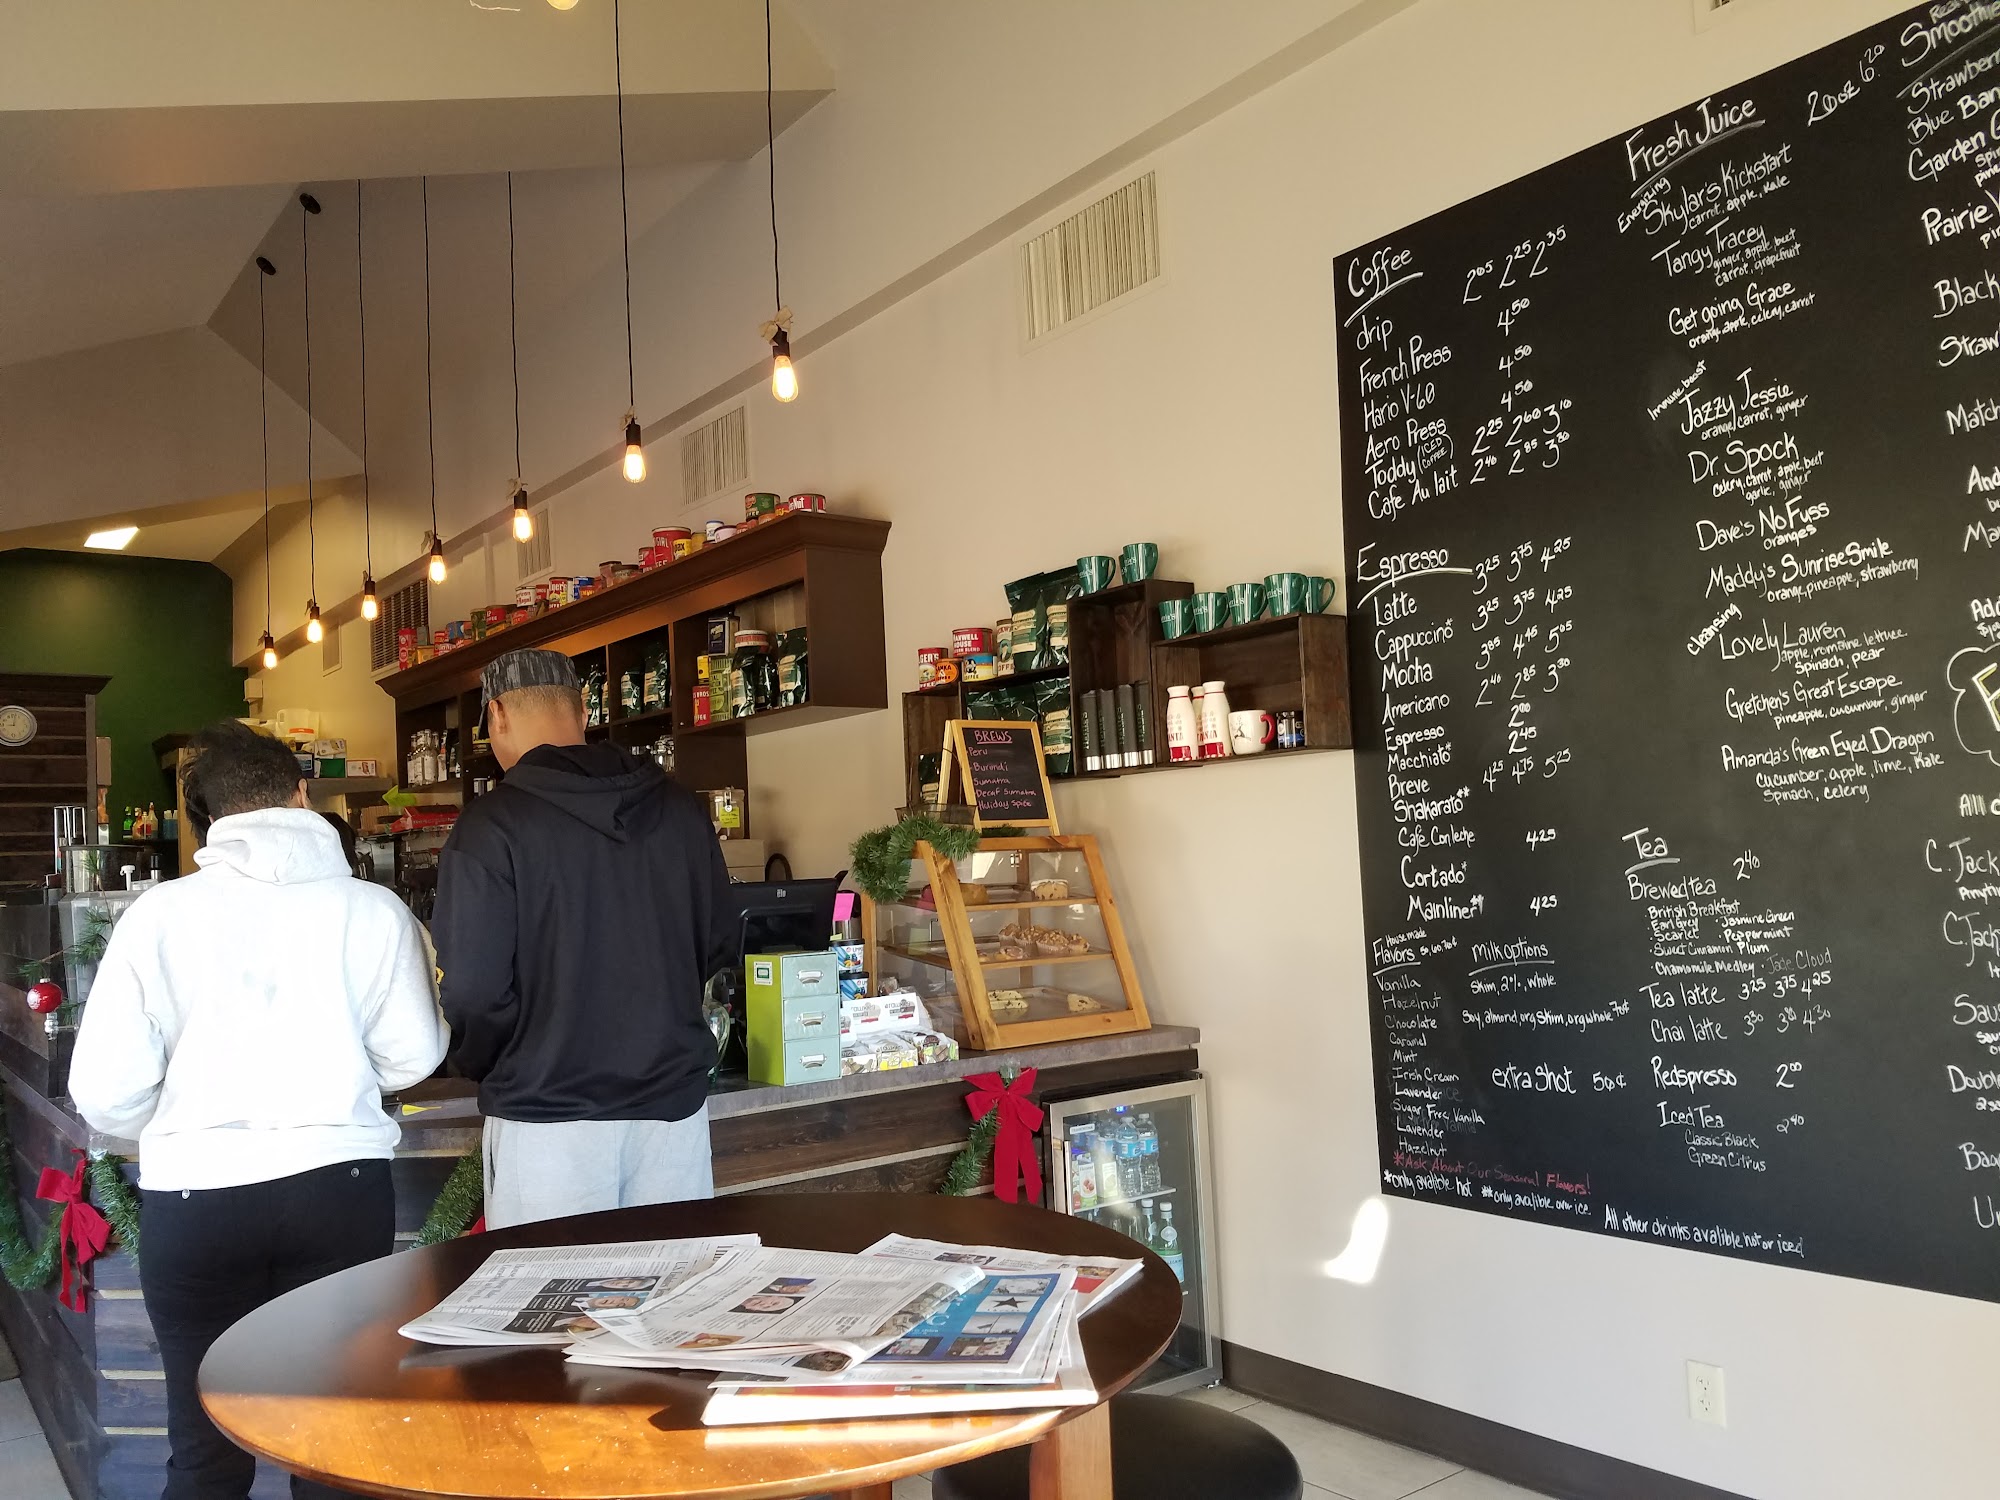 Coffee
drip 2.05 2.25 2.35
French Press 4.50
Hario V-60 4.50
Aero Press 4.50
Toddy (ICED COFFEE) 2.25 2.60 3.10
Cafe Au lait 2.40 2.85 3.30
Espresso
Latte 3.25 3.75 4.25
Cappuccino* 3.25 3.75 4.25
Mocha 3.85 4.45 5.05
Americano 2.40 2.85 3.30
Espresso 2.00
Macchiato* 2.45
Breve 4.25 4.75 5.25
Shakarato**
Café Con leche 4.25
Cortado*
Mainliner** 4.25
House made
Flavors 50, 60, 70¢
Vanilla
Hazelnut
Chocolate
Caramel
Mint
Irish Cream
Lavender
Sugar Free Vanilla
Lavender
Hazelnut
*Ask About Our Seasonal Flavors!
*only avalible hot **only avalible over ice
All other drinks avalible hot or iced
milk options
skim, 2%, whole
Soy, almond, org skim, org whole 70¢
extra shot 50¢
Fresh Juice 20oz 6.20
Energizing
Skylar's Kickstart
carrot, apple, kale
Tangy Tracey
ginger, apple, beet
carrot, grapefruit
Get going Grace
orange, apple, celery, carrot
Immune boost
Jazzy Jessie
orange, carrot, ginger
Dr. Spock
celery, carrot, apple, beet
garlic, ginger
Dave's No Fuss
oranges
Maddy's Sunrise Smile
orange, pineapple, strawberry
Cleansing
Lovely Lauren
apple, romaine lettuce
Spinach, pear
Gretchen's Great Escape
pineapple, cucumber, ginger
Amanda's Green Eyed Dragon
cucumber, apple, lime, Kale
Spinach, celery
Tea
Brewed tea 2.40
· British Breakfast
· Earl Grey · Jasmine Green
· Scarlet · Peppermint
· Sweet Cinnamon Plum
· Chamomile Medley · Jade Cloud
Tea latte 3.25 3.75 4.25
Chai latte 3.30 3.80 4.30
Redspresso 2.00
Iced Tea 2.40
Classic Black
Green Citrus
Smoothie
Strawberry
Blue Ban
Garden G
Prairie
Black
Straw
Match
C. Jack
C. Jack
Double
BREWS
Peru
Burundi
Sumatra
Decaf Sumatra
Holiday Spice
MAXWELL
HOUSE